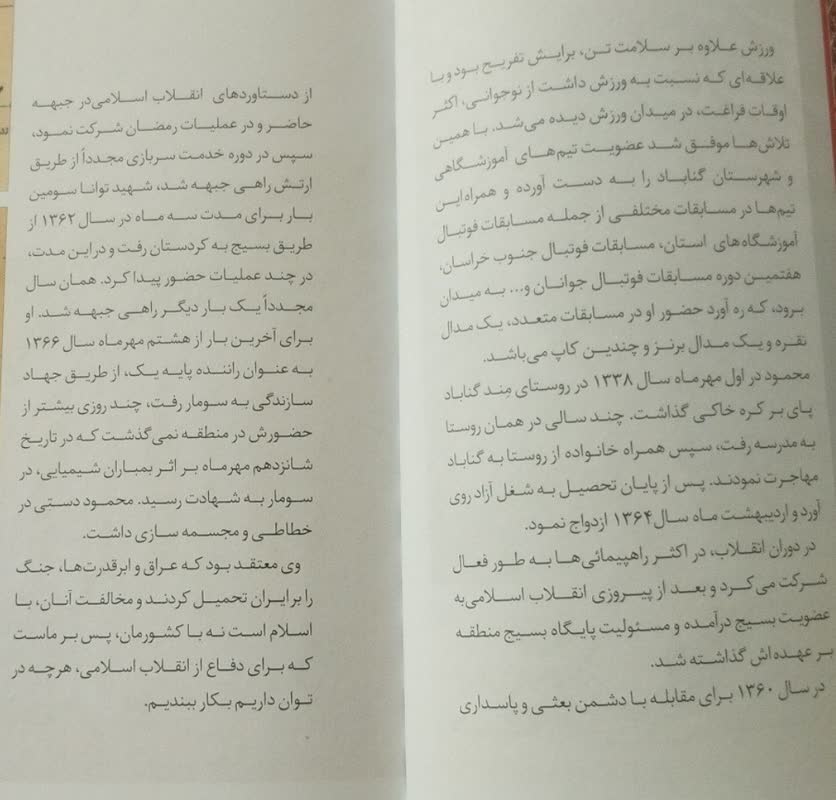 ورزش علاوه بر سلامت تن، برایش تفریح بود و با
علاقه‌ای که نسبت به ورزش داشت از نوجوانی، اکثر
اوقات فراغت، در میدان ورزش دیده می‌شد. با همین
تلاش‌ها موفق شد عضویت تیم‌های آموزشگاهی
و شهرستان گناباد را به دست آورده و همراه این
تیم‌ها در مسابقات مختلفی از جمله مسابقات فوتبال
آموزشگاه‌های استان، مسابقات فوتبال جنوب خراسان،
هفتمین دوره مسابقات فوتبال جوانان و... به میدان
برود، که ره آورد حضور او در مسابقات متعدد، یک مدال
نقره و یک مدال برنز و چندین کاپ می‌باشد.
محمود در اول مهرماه سال ۱۳۳۸ در روستای مِند گناباد
پای بر کره خاکی گذاشت. چند سالی در همان روستا
به مدرسه رفت، سپس همراه خانواده از روستا به گناباد
مهاجرت نمودند. پس از پایان تحصیل به شغل آزاد روی
آورد و اردیبهشت ماه سال ۱۳۶۴ ازدواج نمود.
در دوران انقلاب، در اکثر راهپیمائی‌ها به طور فعال
شرکت می‌کرد و بعد از پیروزی انقلاب اسلامی‌به
عضویت بسیج درآمده و مسئولیت پایگاه بسیج منطقه
بر عهده‌اش گذاشته شد.
در سال ۱۳۶۰ برای مقابله با دشمن بعثی و پاسداری
از دستاوردهای انقلاب اسلامی‌در جبهه
حاضر و در عملیات رمضان شرکت نمود،
سپس در دوره خدمت سربازی مجدداً از طریق
ارتش راهی جبهه شد، شهید توانا سومین
بار برای مدت سه ماه در سال ۱۳۶۲ از
طریق بسیج به کردستان رفت و در این مدت،
در چند عملیات حضور پیدا کرد. همان سال
مجدداً یک بار دیگر راهی جبهه شد. او
برای آخرین بار از هشتم مهرماه سال ۱۳۶۶
به عنوان راننده پایه یک، از طریق جهاد
سازندگی به سومار رفت، چند روزی بیشتر از
حضورش در منطقه نمی‌گذشت که در تاریخ
شانزدهم مهرماه بر اثر بمباران شیمیایی، در
سومار به شهادت رسید. محمود دستی در
خطاطی و مجسمه سازی داشت.
وی معتقد بود که عراق و ابرقدرت‌ها، جنگ
را بر ایران تحمیل کردند و مخالفت آنان، با
اسلام است نه با کشورمان، پس بر ماست
که برای دفاع از انقلاب اسلامی، هرچه در
توان داریم بکار ببندیم.